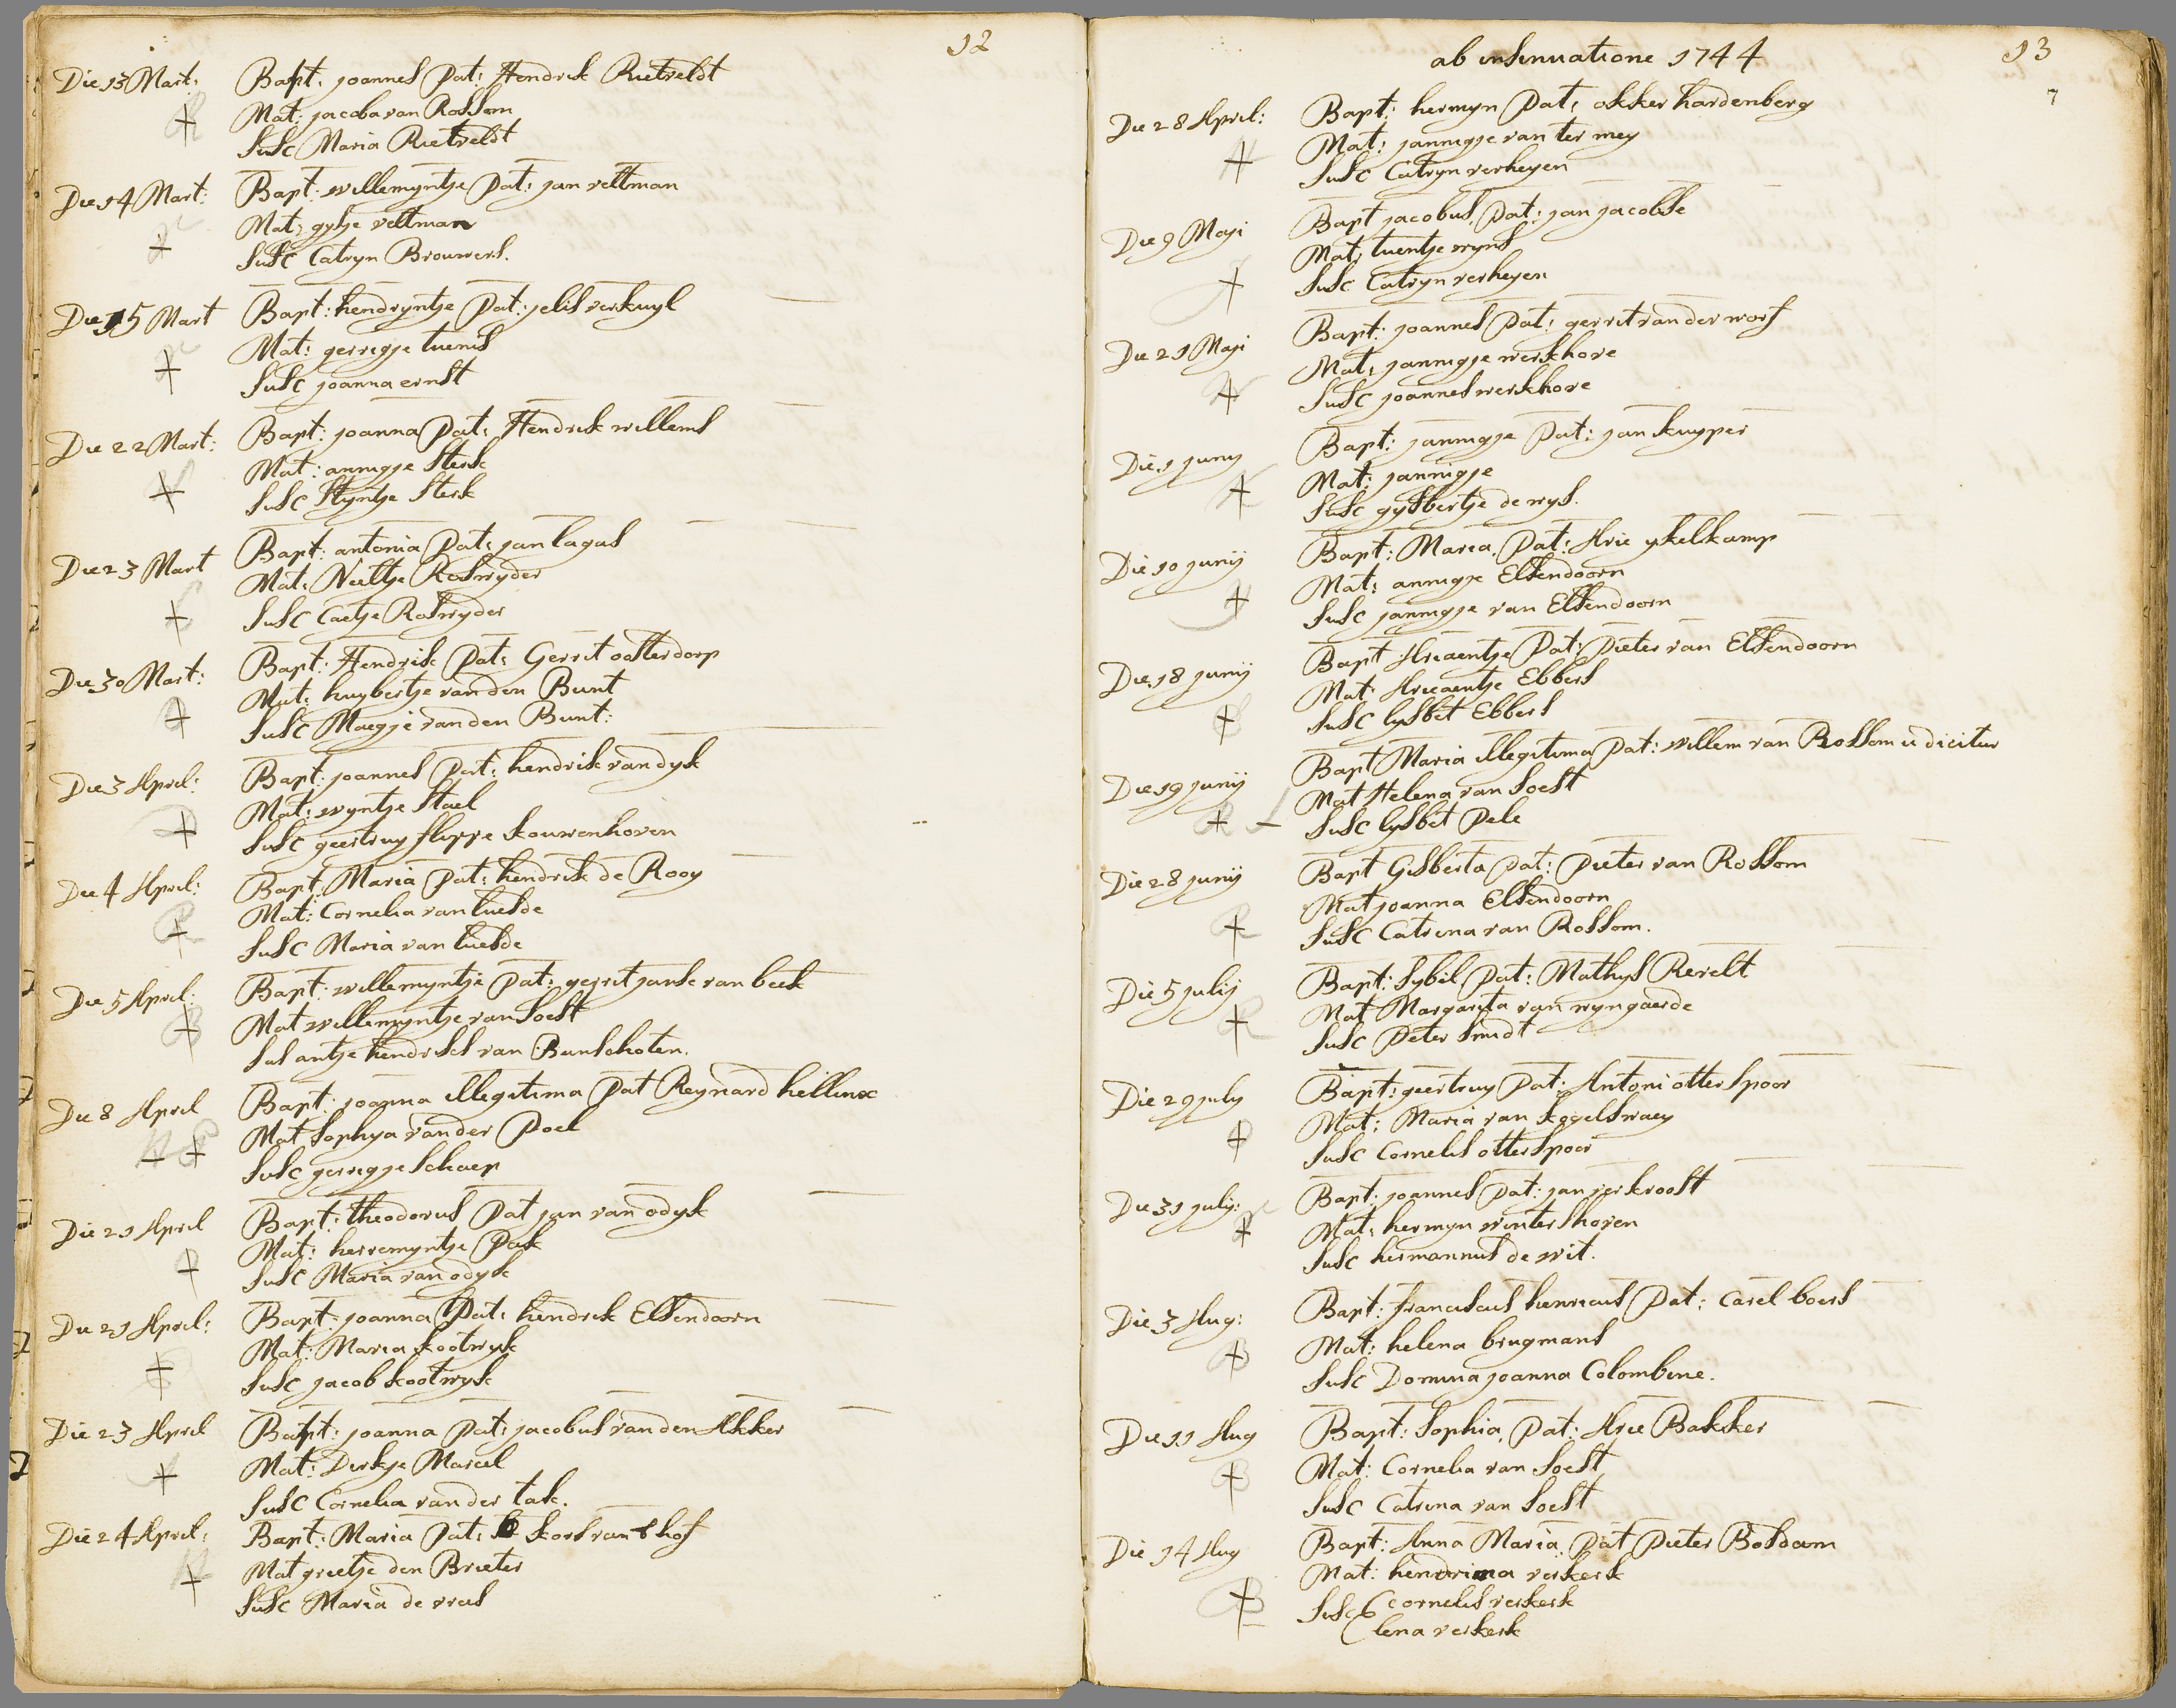 12
Die 13 Mart: Bapt: joannes Pat: Hendrik Rietveldt
Mat: jacoba van Rossom
Susc Maria Rietveldt
Die 14 Mart: Bapt: willemyntje Pat: jan veltman
Mat: gysje veltman
Susc Catryn Brouwers.
Die 15 Mart Bapt: hendryntje Pat: jelis verkuyl
Mat: gerregje tuenis
Susc joanna ernst
Die 22 Mart: Bapt: joanna Pat: Hendrik willems
Mat: annigje Sterk
Susc Styntje Sterk
Die 23 Mart Bapt: antonia Pat: jan lagas
Mat: Neeltje Roswyder
Susc Caetje Roswyder
Die 30 Mart: Bapt: Hendrik Pat: Gerrit oosterdorp
Mat: huybertje van den Bunt
Susc Maegje van den Bunt:
Die 3 April: Bapt: joannes Pat: hendrik van dyk
Mat: wyntje Stael
Susc geertruy flippe kouwenhoven
Die 4 April: Bapt: Maria Pat: hendrik de Rooy
Mat: Cornelia van luesde
Susc Maria van luesde
Die 5 April: Bapt: willemyntje Pat: gerrit janse van beek
Mat willemyntje van Soest
Sus antje hendriks van Bunschoten.
Die 8 April Bapt: joanna illegitima Pat Reynard hellinx
Mat Sophya van der Poel
Susc gerregje Schaep
Die 21 April Bapt: theodorus Pat jan van odyk
Mat: herremyntje Pak
Susc Maria van odyk
Die 21 April: Bapt: joanna Pat: hendrik Elsendoorn
Mat: Maria kootwyk
Susc jacob kootwyk
Die 23 April Bapt: joanna Pat: jacobus van den Akker
Mat: Dirkje Marcel
Susc Cornelia van der tak.
Die 24 April: Bapt: Maria Pat: kors van t hof
Mat grietje den Brieter
Susc Maria de vries
ab insinuatione 1744
13
7
Die 28 April: Bapt: hermyn Pat: okker hardenberg
Mat: jannigje van ter mey
Susc Catryn verheyen
Die 9 Maji Bapt jacobus, Pat: jan jacobse
Mat: tuentje wyns
Susc Catryn verheyen
Die 21 Maji Bapt: joannes Pat: gerrit van der worf
Mat: jannigje werkhove
Susc joannes werkhove
Die 1 juny Bapt: jannigje Pat: jan kuyper
Mat: jannigje
Susc gysbertje de wys.
Die 10 junij Bapt: Maria, Pat: Arie ykelkamp
Mat: annigje Elsendoorn
Susc jannigje van Elsendoorn
Die 18 junij Bapt Ariaentje Pat: Pieter van Elsendoorn
Mat Ariaentje Ebbers
Susc lysbet Ebbers
Die 19 junij Bapt Maria illegitima Pat: willem van Rossom ut dicitur
Mat Helena van Soest
Susc lysbet Pele
Die 28 junij Bapt Gisberta Pat: Pieter van Rossom
Mat joanna Elsendoorn
Susc Catrina van Rossom.
Die 5 julij Bapt: Sybil Pat: Mathys Revelt
Mat Margarita van wyngaerde
Susc Peter Smidt
Die 29 july Bapt: geertruy Pat: Antoni otterspoor
Mat: Maria van kogelswaey
Susc Cornelis otterspoor
Die 31 july: Bapt: joannes Pat: jan verkroost
Mat: hermyn wintershoven
Susc hermannus de wit.
Die 3 Aug: Bapt: franciscus henricus Pat: Carel boers
Mat: helena brugmans
Susc Domina joanna Colombine.
Die 11 Aug Bapt: Sophia, Pat: Arie Bakker
Mat: Cornelia van Soest
Susc Catrina van Soest
Die 14 Aug Bapt: Anna Maria Pat Pieter Bosdam
Mat: hendrina verkerk
Susc cornelis verkerk
lena verkerk